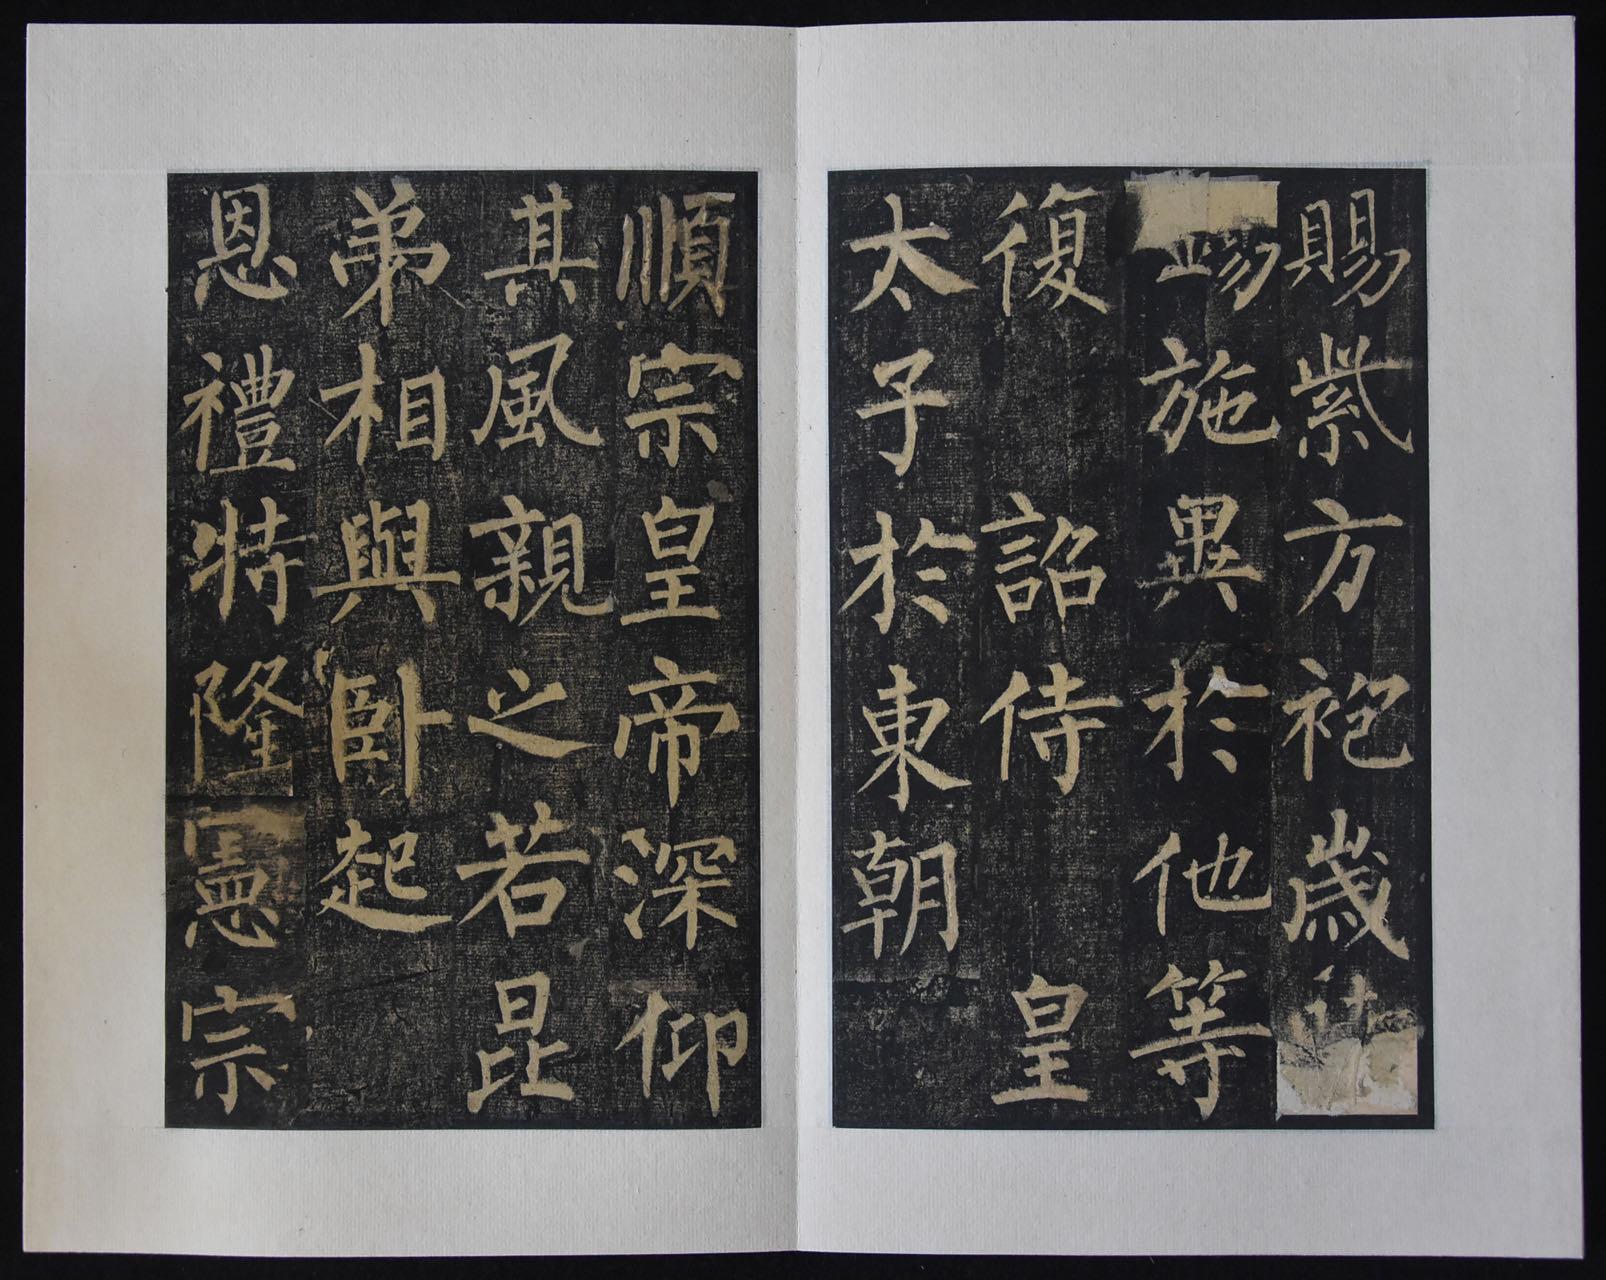 賜紫方袍歲
錫施異於他等
復詔侍皇
太子於東朝
順宗皇帝深仰
其風親之若昆
弟相與臥起
恩禮特隆憲宗